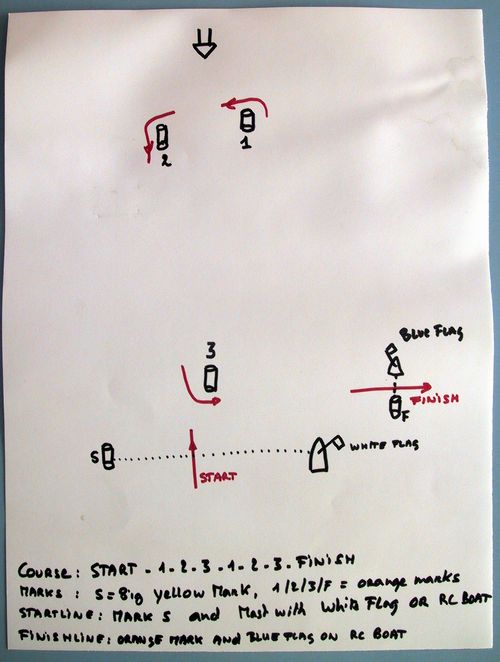 1
2
BLUE FLAG
3
FINISH
F
WHITE FLAG
S
START
COURSE: START - 1 - 2 - 3 - 1 - 2 - 3 - FINISH
MARKS: S = Big yellow Mark, 1/2/3/F = orange marks
STARTLINE: MARK S and Mast with White Flag OR RC BOAT
FINISHLINE: ORANGE MARK AND BLUE FLAG ON RC BOAT